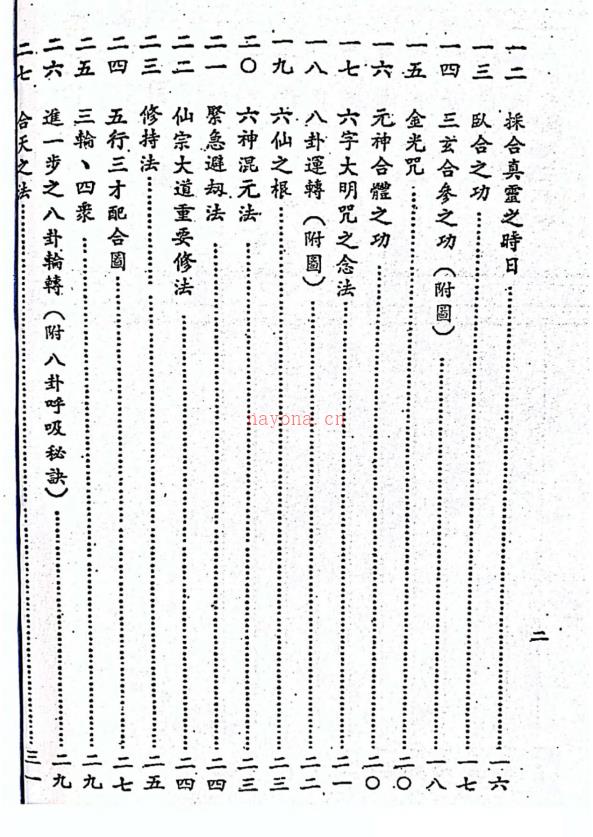 一二　採合真靈之時日…………一六
一三　臥合之功…………一七
一四　三玄合參之功（附圖）…………一八
一五　金光咒…………二〇
一六　元神合體之功…………二〇
一七　六字大明咒之念法…………二一
一八　八卦運轉（附圖）…………二二
一九　六仙之根…………二三
二〇　六神混元法…………二三
二一　緊急避刼法…………二四
二二　仙宗大道重要修法…………二四
二三　修持法…………二五
二四　五行三才配合圖…………二七
二五　三輪、四衆…………二九
二六　進一步之八卦輪轉（附八卦呼吸秘訣）…………二九
二七　合天之法…………三一
二
nayona.cn